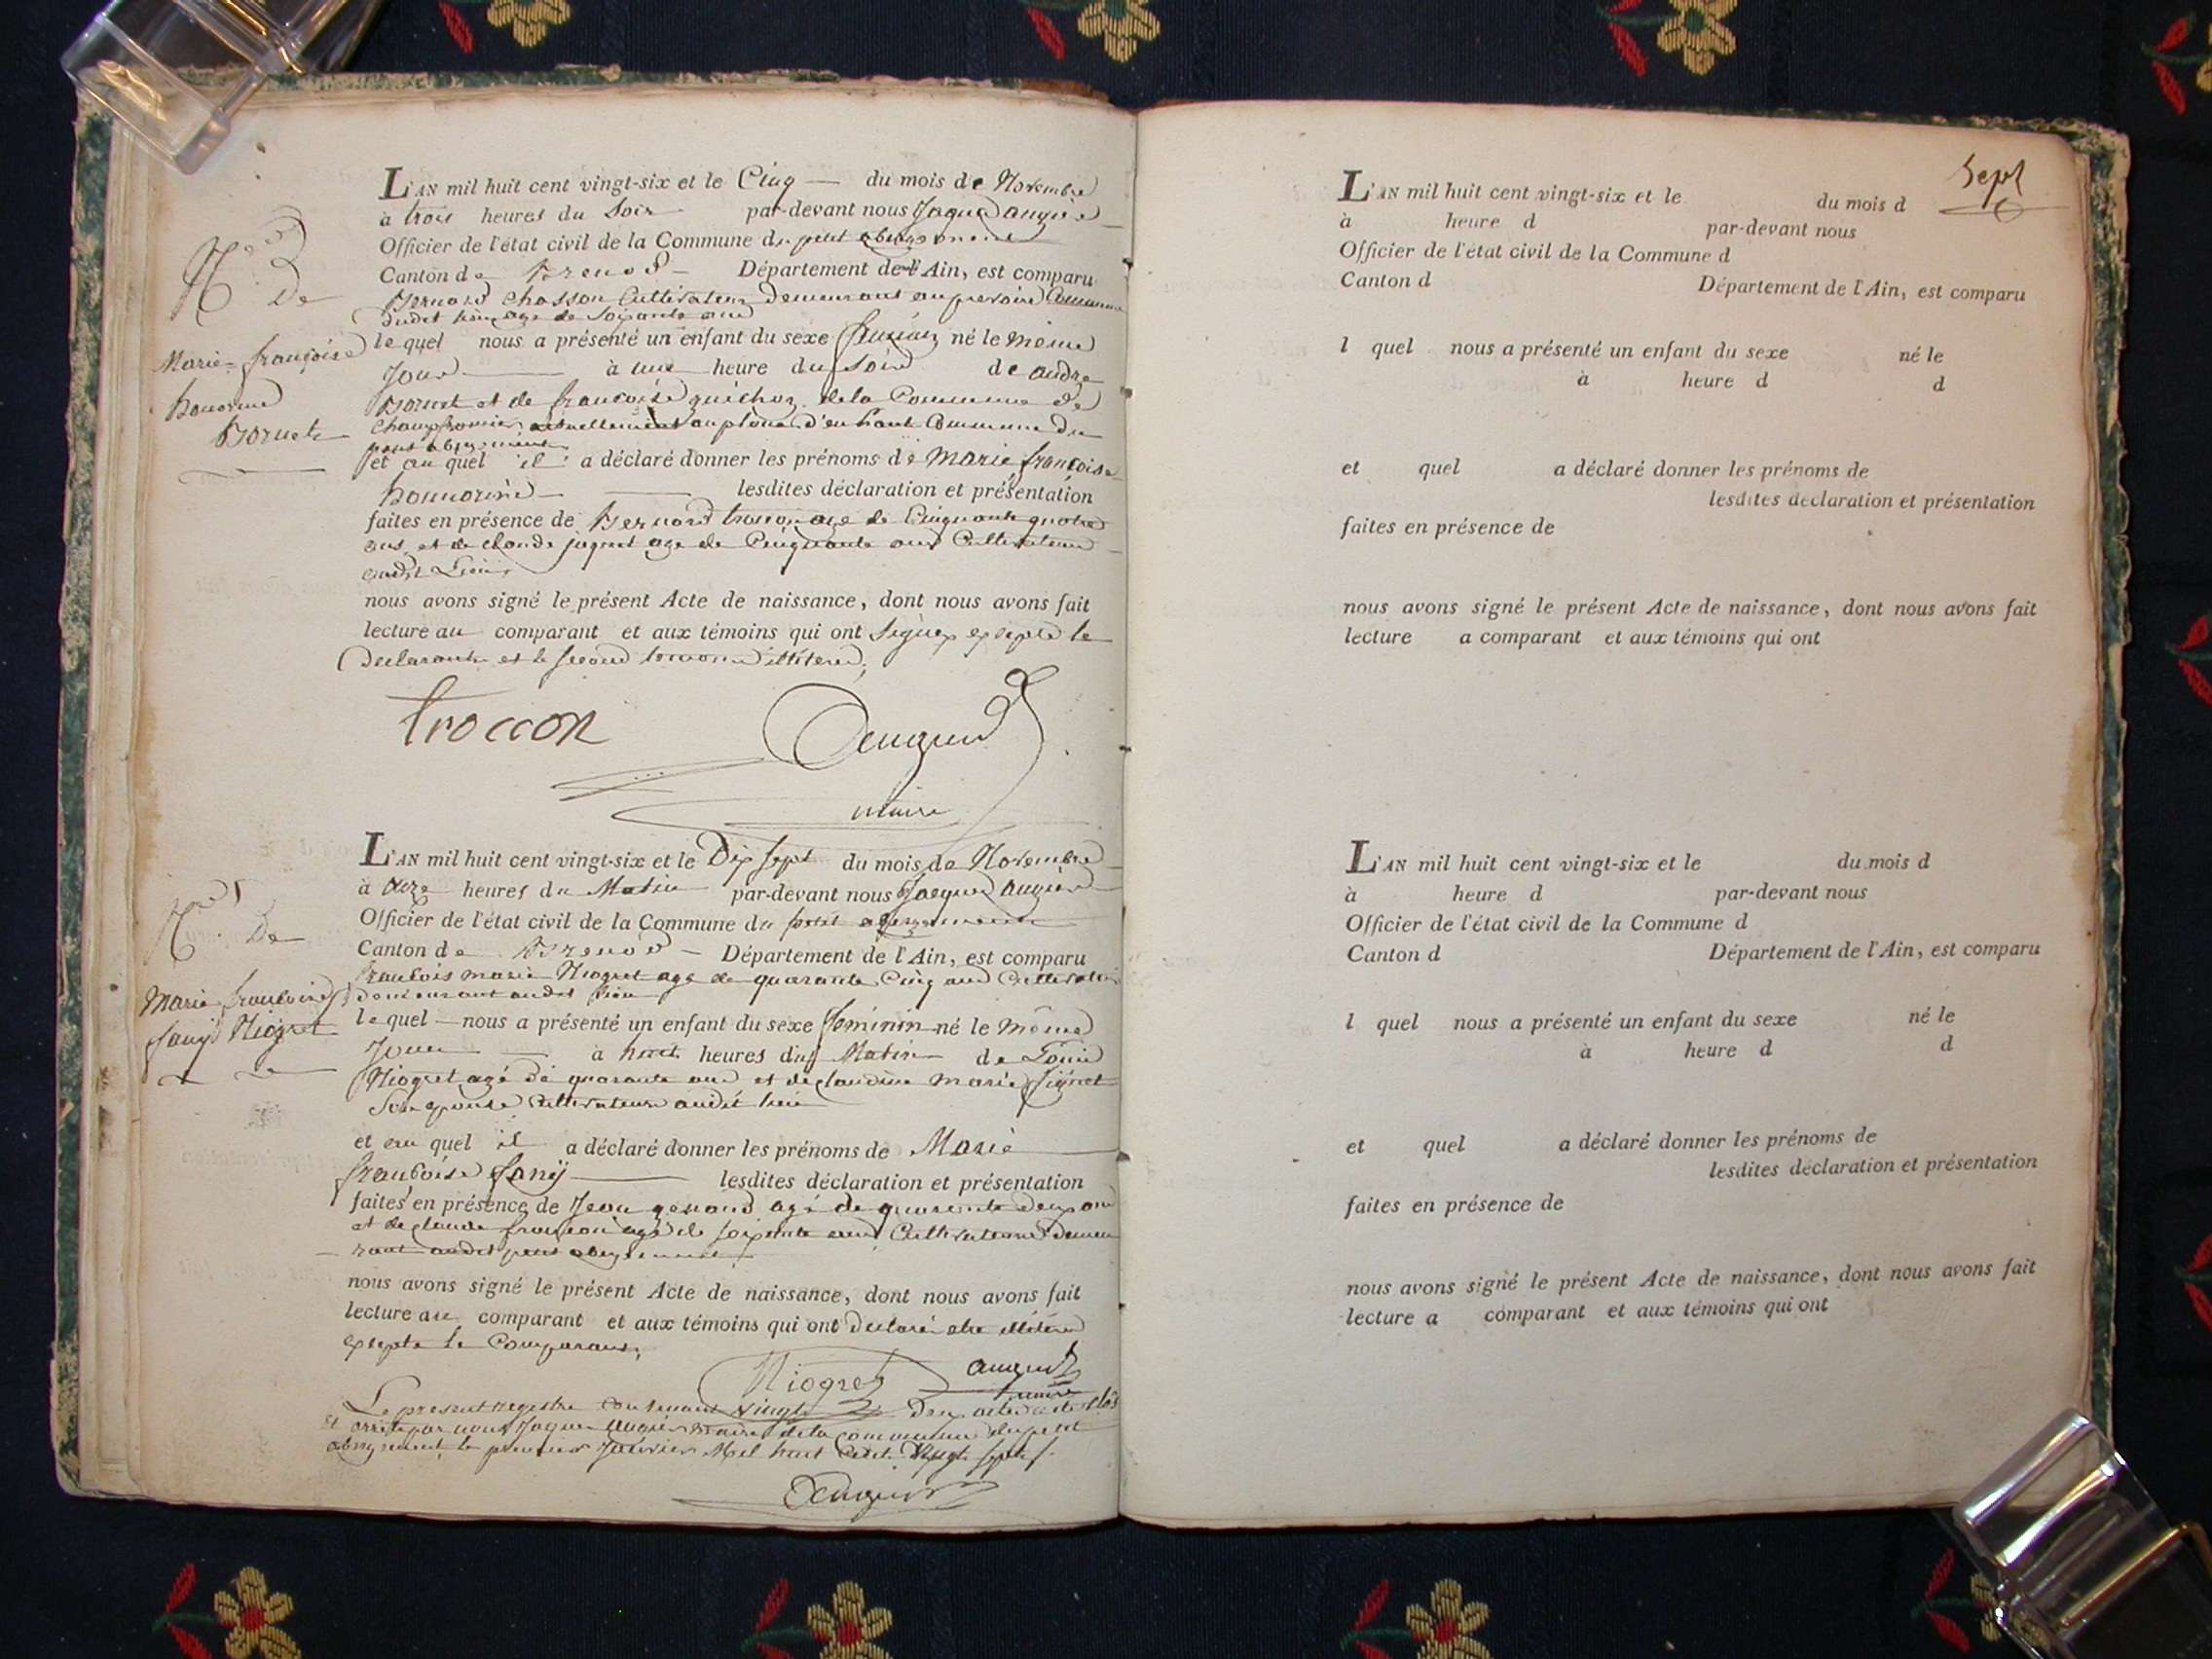 L'AN mil huit cent vingt-six et le Cinq du mois de Novembre
à trois heures du Soir par-devant nous Jaques augier
Officier de l'état civil de la Commune du petit abergement
Canton de Brenod Département de l'Ain, est comparu
Bernard Chosson Cultivateur demeurant au Commune
dudit lieu age de Soixante ans
Nce
De
Marie françoise
honorine
Bornet
le quel nous a présenté un enfant du sexe féminin né le même
Jour à une heure du Soir de andré
Bornet et de francoise guichon de la Commune de
Champfromier actuellement d'en haut Commune du
petit abergement
et au quel il a déclaré donner les prénoms de Marie francoise
honnorine lesdites déclaration et présentation
faites en présence de Bernard troccon age de Cinquante quatre
ans et de claude joqnet age de Cinquante ans Cultivateurs
audit Lieu
nous avons signé le présent Acte de naissance, dont nous avons fait
lecture au comparant et aux témoins qui ont Signes exsepté le
declarant et le second temoin illiteré,
troccon
augier
maire
L'AN mil huit cent vingt-six et le Dix sept du mois de Novembre
à onze heures du Matin par-devant nous Jacques augier
Officier de l'état civil de la Commune du petit abergement
Canton de Brenod Département de l'Ain, est comparu
francois marie Niogret age de quarante Cinq ans Cultivateur
demeurant audit lieu
Nce
De
Marie francoise
fany Niogret
le quel nous a présenté un enfant du sexe feminin né le même
Jour à huit heures du Matin de Louis
Niogret agé de quarante ans et de claudine marie
Son epouse Cultivateurs audit lieu
et au quel il a déclaré donner les prénoms de Marie
francoise fany lesdites déclaration et présentation
faites en présence de Jean agé de quarante deux ans
et de claude agé de soixante ans Cultivateurs demeu
rant audit petit abergement
nous avons signé le présent Acte de naissance, dont nous avons fait
lecture au comparant et aux témoins qui ont declaré etre illiteré
exsepte le Comparant,
Niogret
augier
maire
Le present registre contenant vingt deux actes a été clos
et arrete par nous Jaques augier maire de la commune du petit
abergement le premier Janvier Mil huit Cent Vingt sept
augier
Sept
L'AN mil huit cent vingt-six et le du mois d
à heure d par-devant nous
Officier de l'état civil de la Commune d
Canton d Département de l'Ain, est comparu
l quel nous a présenté un enfant du sexe né le
à heure d d
et quel a déclaré donner les prénoms de
lesdites déclaration et présentation
faites en présence de
nous avons signé le présent Acte de naissance, dont nous avons fait
lecture a comparant et aux témoins qui ont
L'AN mil huit cent vingt-six et le du mois d
à heure d par-devant nous
Officier de l'état civil de la Commune d
Canton d Département de l'Ain, est comparu
l quel nous a présenté un enfant du sexe né le
à heure d d
et quel a déclaré donner les prénoms de
lesdites déclaration et présentation
faites en présence de
nous avons signé le présent Acte de naissance, dont nous avons fait
lecture a comparant et aux témoins qui ont